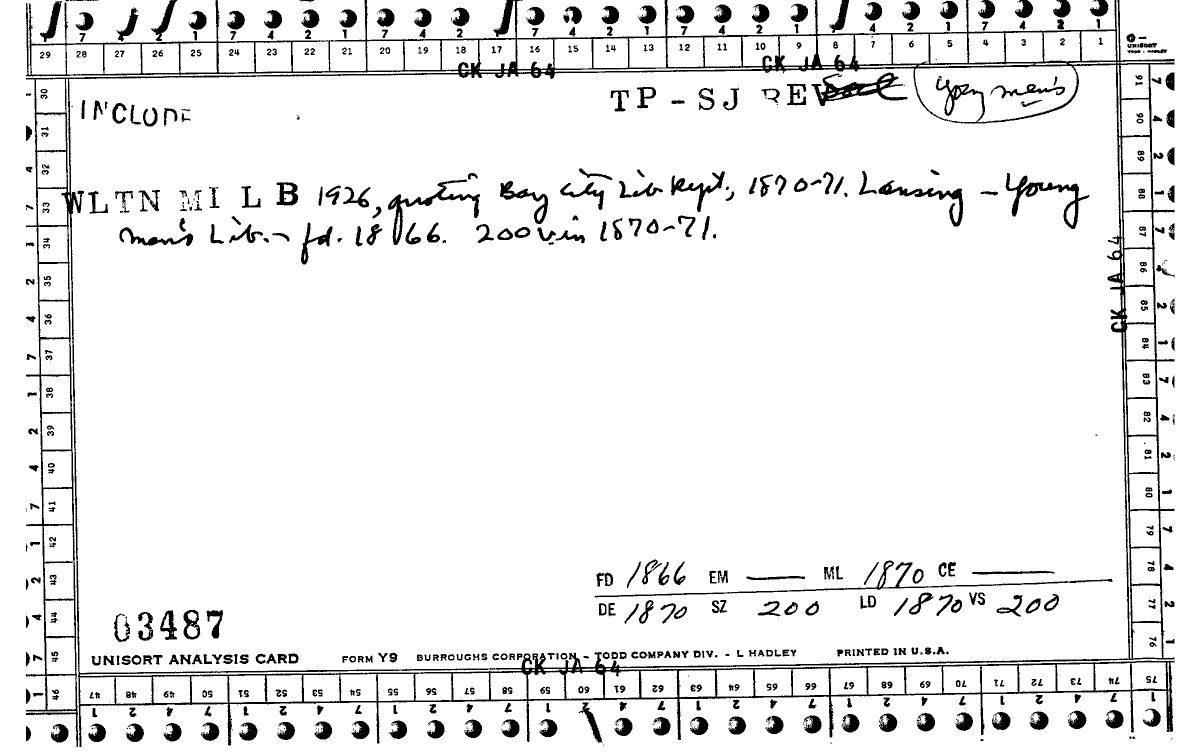 7 4 2 1 7 4 2 1 7 4 2 1 7 4 2 1 7 4 2 1 7 4 2 1
29 28 27 26 25 24 23 22 21 20 19 18 17 16 15 14 13 12 11 10 9 8 7 6 5 4 3 2 1
UNISORT
TODD - HADLEY
CK JA 64 CK JA 64
INCLUDE TP - SJ REV Young men's
WLTN MI L B 1926, quoting Bay City Lib Rept, 1870-71. Lansing - Young
men's Lib. - fd. 1866. 200 v in 1870-71.
30 31 32 33 34 35 36 37 38 39 40 41 42 43 44 45 46
91 90 89 88 87 86 85 84 83 82 81 80 79 78 77 76
CK JA 64
FD 1866 EM — ML 1870 CE —
DE 1870 SZ 200 LD 1870 VS 200
03487
UNISORT ANALYSIS CARD FORM Y9 BURROUGHS CORPORATION - TODD COMPANY DIV. - L HADLEY PRINTED IN U.S.A.
CK JA 64
47 48 49 50 51 52 53 54 55 56 57 58 59 60 61 62 63 64 65 66 67 68 69 70 71 72 73 74 75
1 2 4 7 1 2 4 7 1 2 4 7 1 2 4 7 1 2 4 7 1 2 4 7 1 2 4 7 1